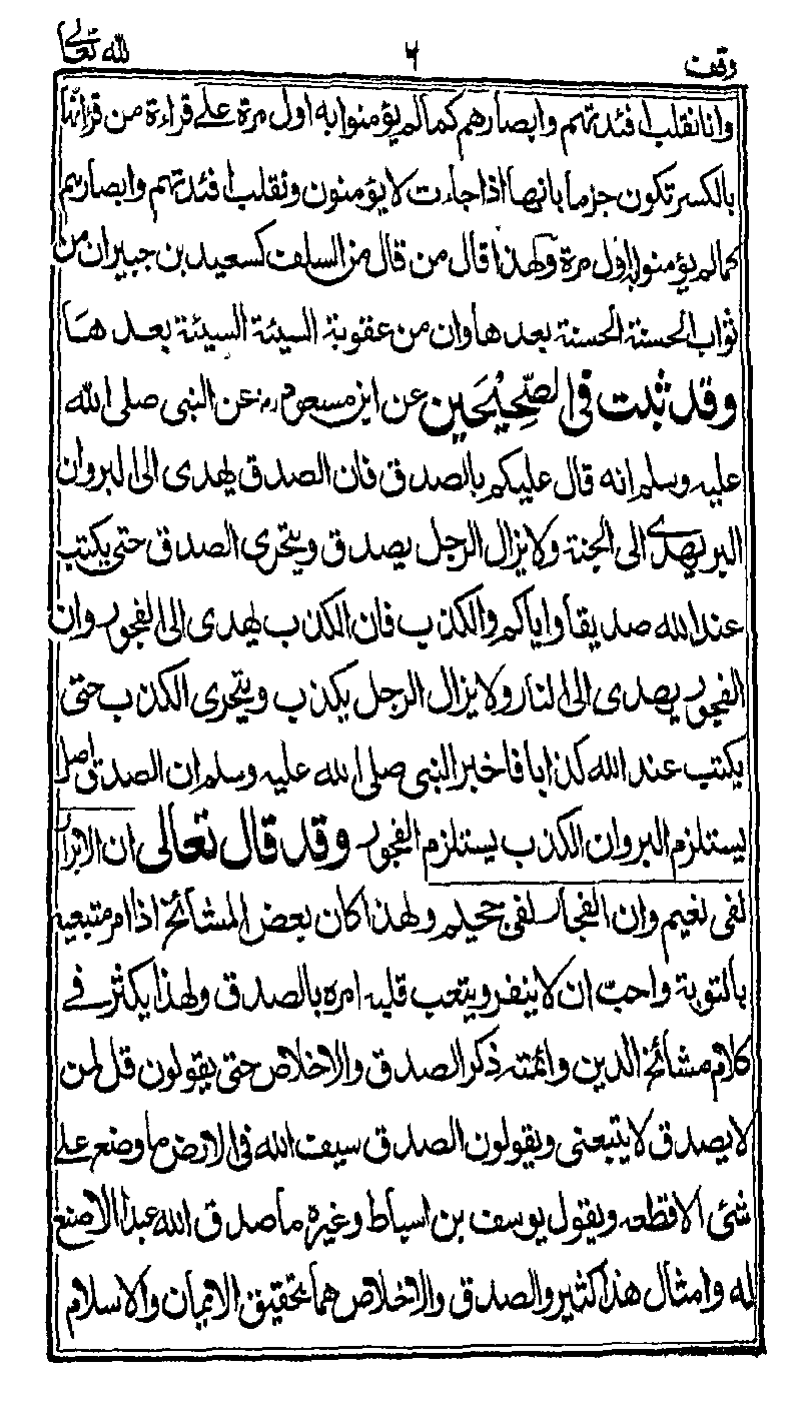 وقف ٦ لله تعالى
وانا نقلب افئدتهم وابصارهم كما لم يؤمنوا به اول مرة على قراءة من قرأ انها
بالكسر تكون جزما بانها اذا جاءت لا يؤمنون ونقلب افئدتهم وابصارهم
كما لم يؤمنوا به اول مرة ولهذا قال من قال من السلف كسعيد بن جبير ان من
ثواب الحسنة الحسنة بعدها وان من عقوبة السيئة السيئة بعدها
وقد ثبت في الصَّحِيْحَين عن ابن مسعود رض عن النبى صلى الله
عليه وسلم انه قال عليكم بالصدق فان الصدق يهدى الى البر وان
البر يهدى الى الجنة ولا يزال الرجل يصدق ويتحرى الصدق حتى يكتب
عند الله صديقا واياكم والكذب فان الكذب يهدى الى الفجور وان
الفجور يهدى الى النار ولا يزال الرجل يكذب ويتحرى الكذب حتى
يكتب عند الله كذابا فاخبر النبى صلى الله عليه وسلم ان الصدق اصل
يستلزم البر وان الكذب يستلزم الفجور وقد قال تعالى ان الابرار
لفى نعيم وان الفجار لفى جحيم ولهذا كان بعض المشائخ اذا امر متبعيه
بالتوبة واحبّ ان لا ينفر ويتعب قلبه امره بالصدق ولهذا يكثر في
كلام مشائخ الدين وائمته ذكر الصدق والاخلاص حتى يقولون قل لمن
لا يصدق لا يتبعنى ويقولون الصدق سيف الله فى الارض ما وضع على
شئ الا قطعه ويقول يوسف بن اسباط وغيره ما صدق الله عبد الا صنع
له وامثال هذا كثير والصدق والاخلاص هما تحقيق الايمان والاسلام